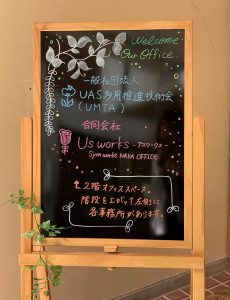 Welcome
Our Office
一般社団法人
UAS多用推進技術会
(UMTA)
合同会社
Us works -アスワークス-
Symworks NARA OFFICE
2階オフィススペース。
階段を上がって左側に
各事務所があります。